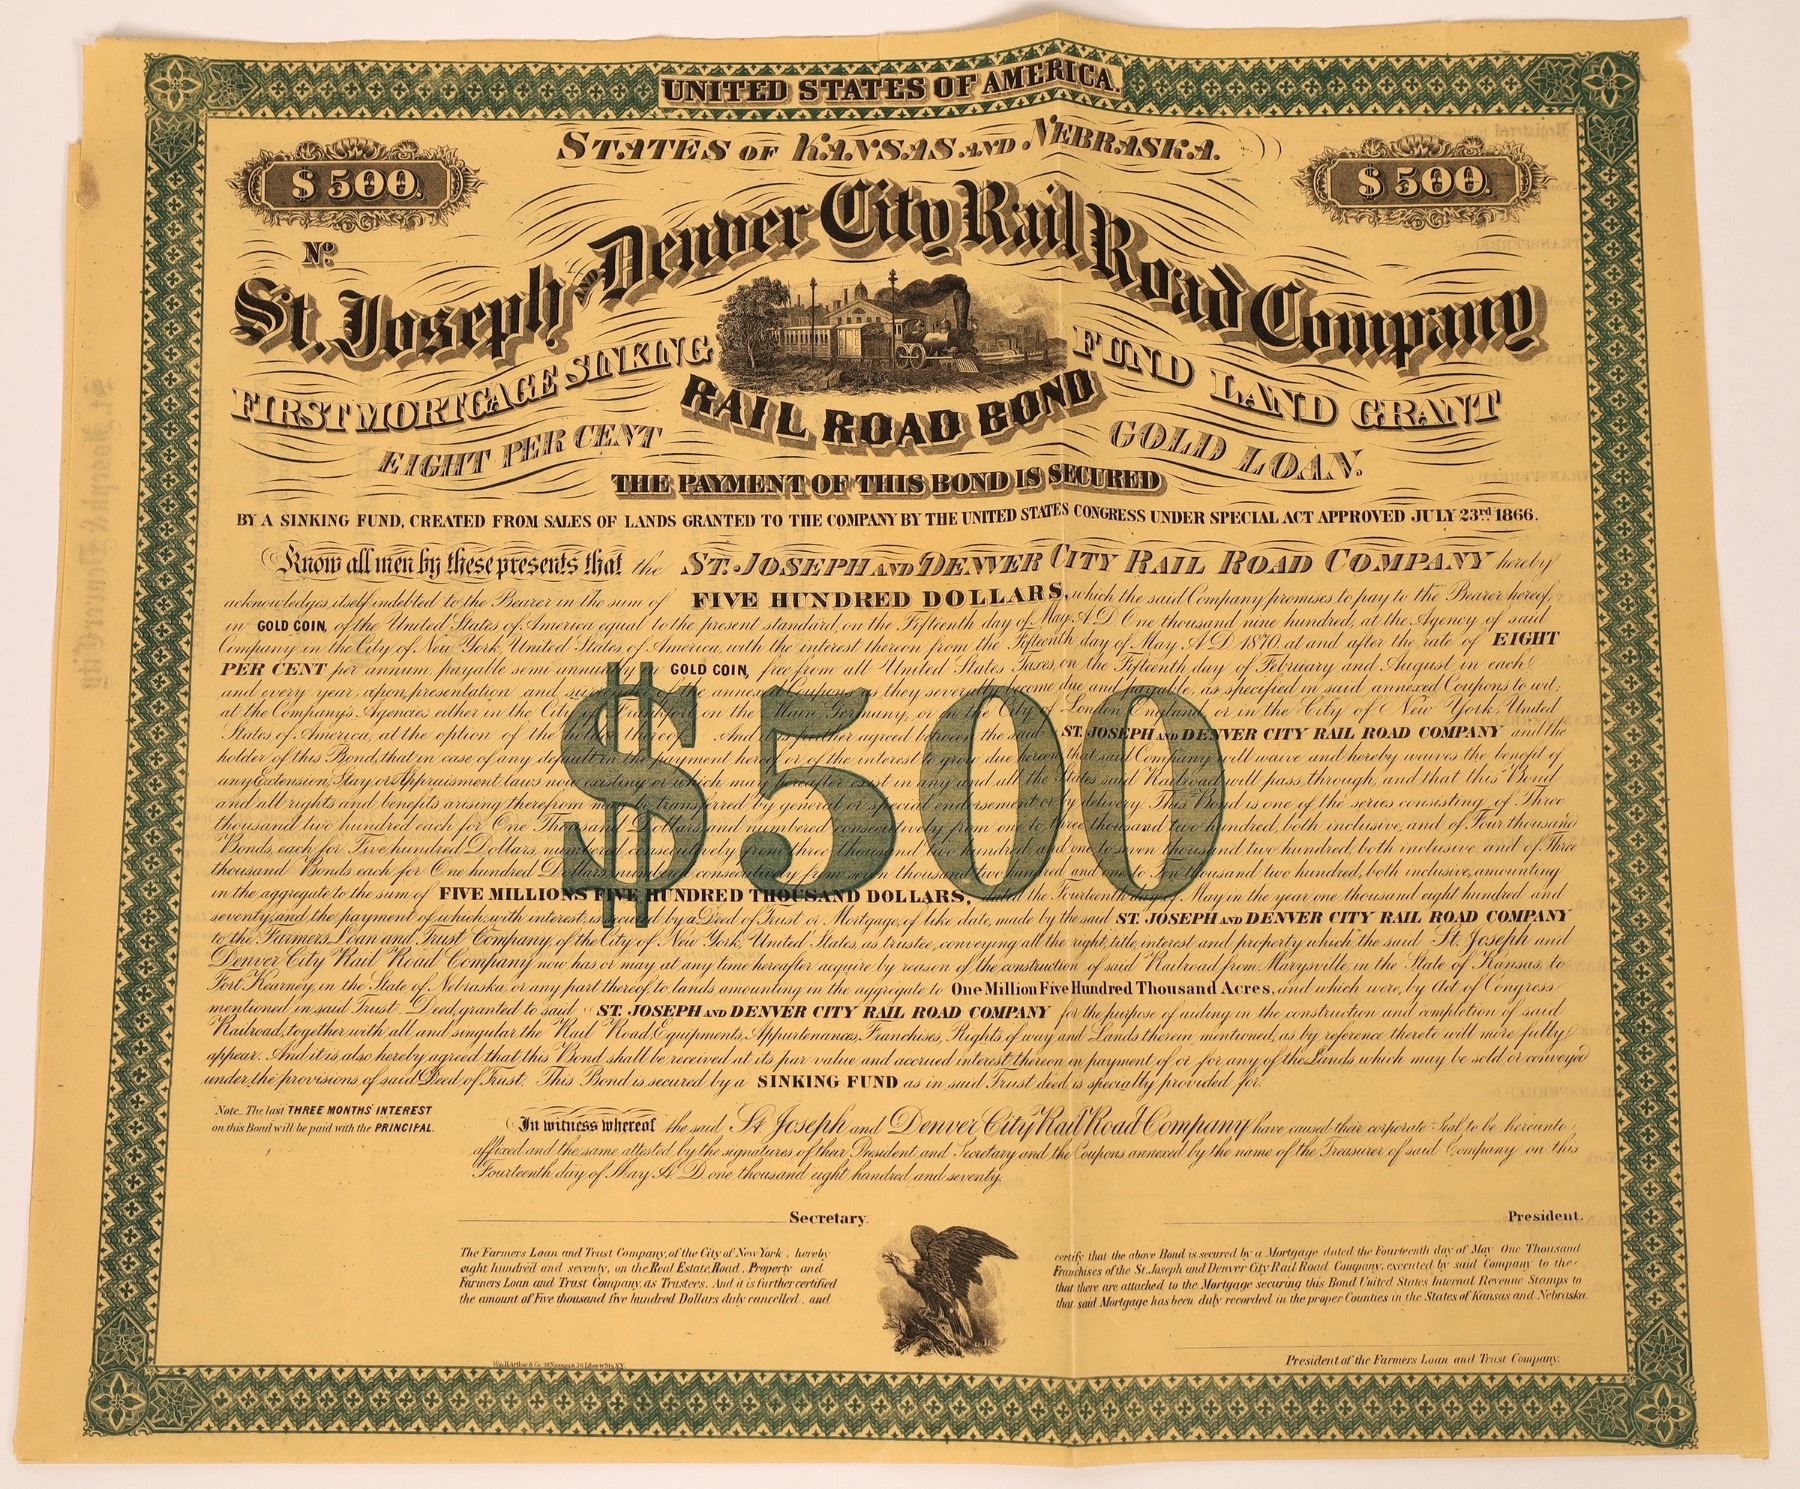 UNITED STATES OF AMERICA.
STATES OF KANSAS AND NEBRASKA.
$500.
$500.
No.
St. Joseph AND Denver City Rail Road Company
FIRST MORTGAGE SINKING FUND LAND GRANT
RAIL ROAD BOND
EIGHT PER CENT GOLD LOAN.
THE PAYMENT OF THIS BOND IS SECURED
BY A SINKING FUND, CREATED FROM SALES OF LANDS GRANTED TO THE COMPANY BY THE UNITED STATES CONGRESS UNDER SPECIAL ACT APPROVED JULY 23rd 1866.
Know all men by these presents that the ST. JOSEPH AND DENVER CITY RAIL ROAD COMPANY hereby
acknowledges itself indebted to the Bearer in the sum of FIVE HUNDRED DOLLARS, which the said Company promises to pay to the Bearer hereof,
in GOLD COIN, of the United States of America equal to the present standard, on the Fifteenth day of May A.D. One thousand nine hundred, at the Agency of said
Company in the City of New York, United States of America, with the interest thereon from the Fifteenth day of May A.D. 1870, at and after the rate of EIGHT
PER CENT per annum, payable semi annually in GOLD COIN, free from all United States Taxes, on the Fifteenth day of February and August in each
and every year, upon presentation and surrender of the annexed Coupons as they severally become due and payable, as specified in said annexed Coupons to wit;
at the Company's Agencies either in the City of Frankfort on the Main, Germany, or in the City of London, England, or in the City of New York, United
States of America, at the option of the holder thereof. And it is further agreed between the said ST. JOSEPH AND DENVER CITY RAIL ROAD COMPANY and the
holder of this Bond, that in case of any default in the payment hereof or of the interest to grow due hereon that said Company will waive and hereby waives the benefit of
any Extension, Stay or Appraisment laws now existing or which may hereafter exist in any and all the States said Railroad will pass through, and that this Bond
and all rights and benefits arising therefrom may be transferred by general or special endorsement or by delivery. This Bond is one of the series consisting of Three
thousand two hundred each for One Thousand Dollars, and numbered consecutively from one to three thousand two hundred, both inclusive, and of Four thousand
Bonds, each for Five hundred Dollars, numbered consecutively from three thousand two hundred and one to seven thousand two hundred, both inclusive, and of Three
thousand Bonds each for One hundred Dollars, numbered consecutively from seven thousand two hundred and one to Ten thousand two hundred, both inclusive, amounting
in the aggregate to the sum of FIVE MILLIONS FIVE HUNDRED THOUSAND DOLLARS, dated the Fourteenth day of May in the year one thousand eight hundred and
seventy, and the payment of which, with interest, is secured by a Deed of Trust or Mortgage, of like date, made by the said ST. JOSEPH AND DENVER CITY RAIL ROAD COMPANY
to the Farmers Loan and Trust Company, of the City of New York, United States, as trustee, conveying all the right, title, interest and property which the said St. Joseph and
Denver City Rail Road Company now has or may at any time hereafter acquire by reason of the construction of said Railroad from Marysville, in the State of Kansas, to
Fort Kearney, in the State of Nebraska, or any part thereof, to lands, amounting in the aggregate to One Million Five Hundred Thousand Acres, and which were, by Act of Congress
mentioned in said Trust Deed, granted to said ST. JOSEPH AND DENVER CITY RAIL ROAD COMPANY for the purpose of aiding in the construction and completion of said
Railroad, together with all and singular the Rail Road, Equipments, Appurtenances, Franchises, Rights of way and Lands therein mentioned, as by reference thereto will more fully
appear. And it is also hereby agreed that this Bond shall be received at its par value and accrued interest thereon in payment of or for any of the Lands which may be sold or conveyed
under the provisions of said Deed of Trust. This Bond is secured by a SINKING FUND as in said Trust deed is specially provided for.
$500
Note. The last THREE MONTHS' INTEREST
on this Bond will be paid with the PRINCIPAL.
In witness whereof the said St. Joseph and Denver City Rail Road Company have caused their corporate Seal to be hereunto
affixed and the same attested by the signatures of their President and Secretary and the Coupons annexed by the name of the Treasurer of said Company on this
Fourteenth day of May A.D. one thousand eight hundred and seventy.
Secretary.
President.
The Farmers Loan and Trust Company, of the City of New York, hereby certify that the above Bond is secured by a Mortgage dated the Fourteenth day of May One Thousand
eight hundred and seventy, on the Real Estate, Road, Property and Franchises of the St. Joseph and Denver City Rail Road Company, executed by said Company to the
Farmers Loan and Trust Company, as Trustees. And it is further certified that there are attached to the Mortgage securing this Bond United States Internal Revenue Stamps to
the amount of Five thousand five hundred Dollars duly cancelled, and that said Mortgage has been duly recorded in the proper Counties in the States of Kansas and Nebraska.
President of the Farmers Loan and Trust Company.